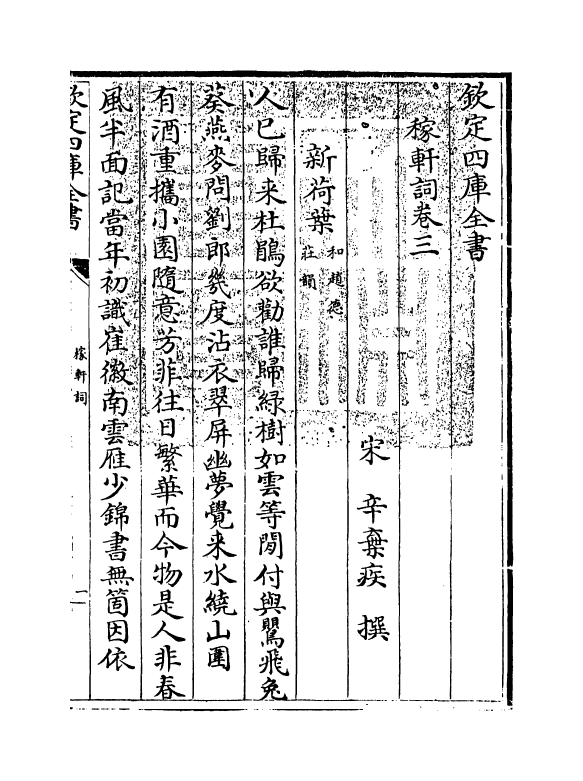 欽定四庫全書
稼軒詞卷三
宋 辛棄疾 撰
新荷葉和趙德莊韻
人已歸来杜鵑欲勸誰歸緑樹如雲等閒付與鸎飛兔
葵燕麥問劉郎㡬度沾衣翠屏幽夢覺来水繞山圍
有酒重攜小園隨意芳菲往日繁華而今物是人非春
風半面記當年初識崔徽南雲雁少錦書無箇因依
欽定四庫全書
稼軒詞